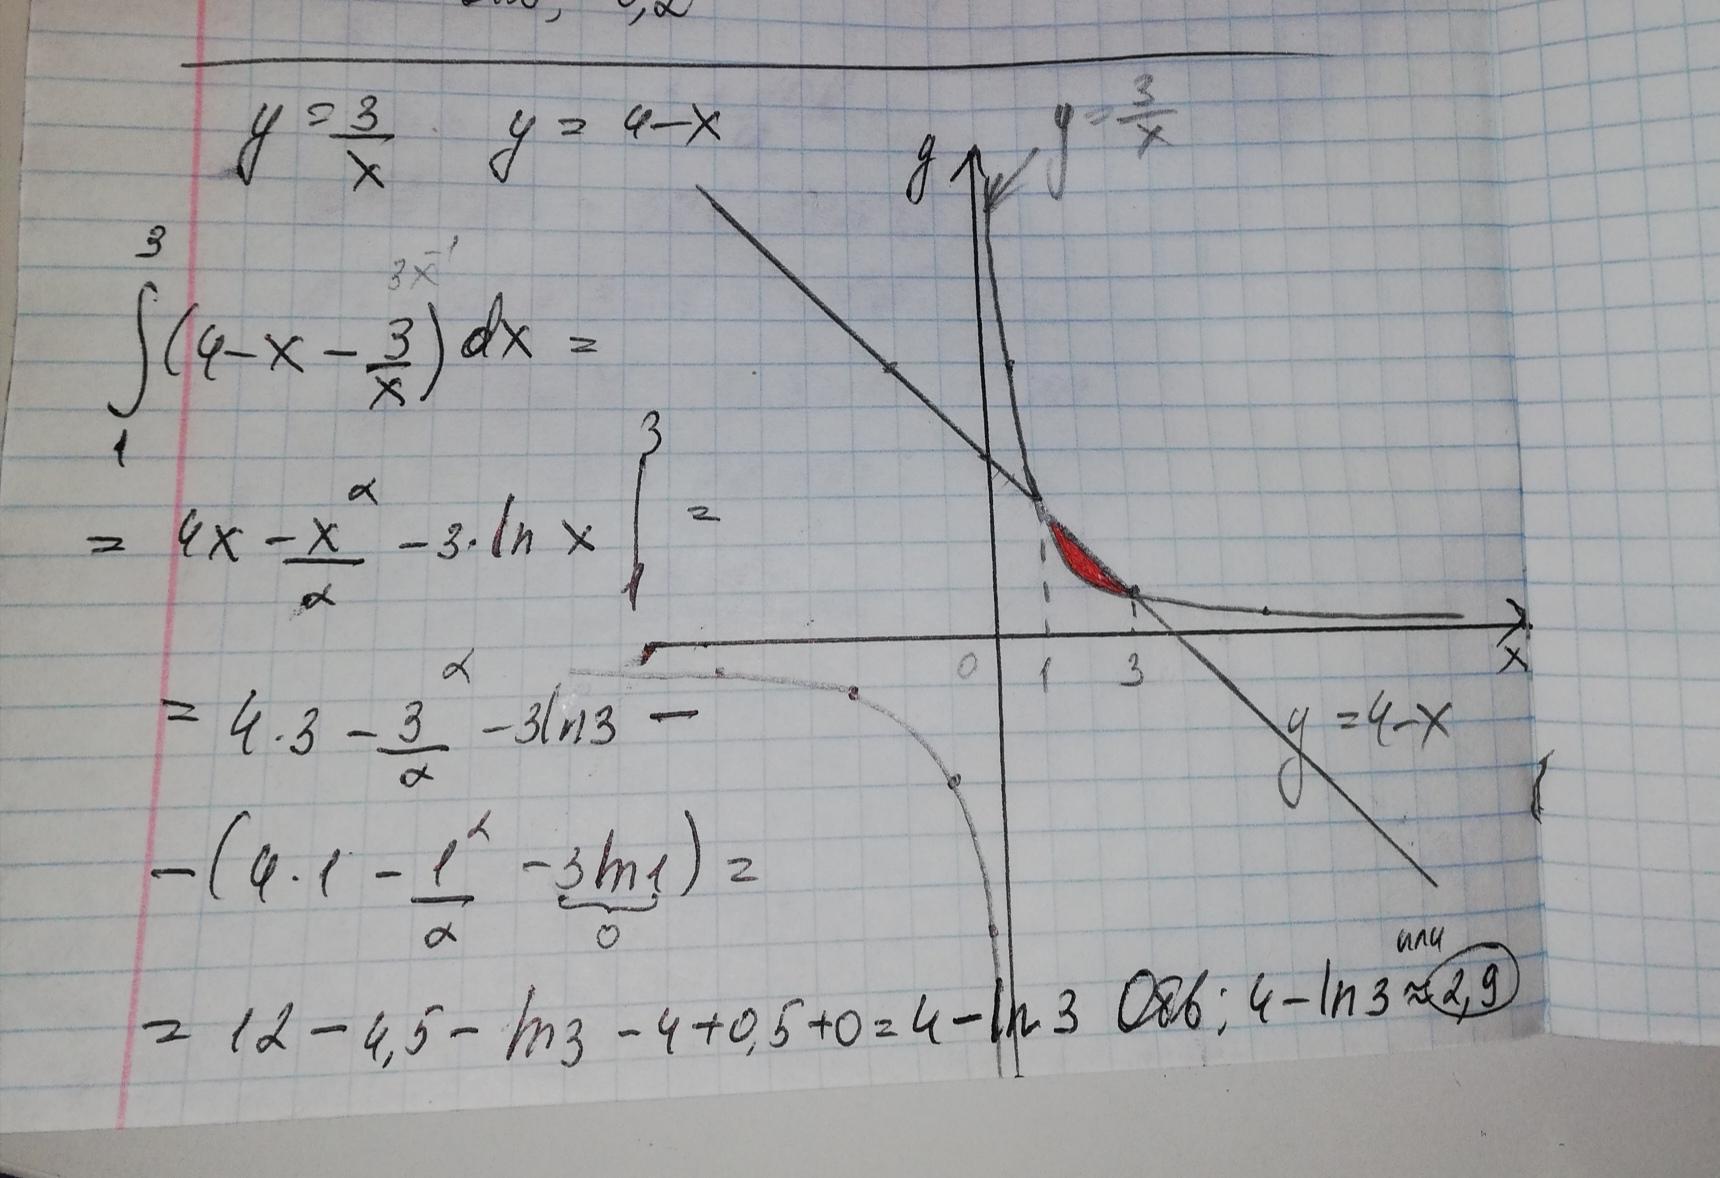 y = 3/x   y = 4-x
3x⁻¹
∫₁³ (4-x-3/x) dx =
= 4x - x²/2 - 3·ln x |₁³ =
= 4·3 - 3²/2 - 3ln3 -
-(4·1 - 1²/2 - 3ln1) =
0
= 12 - 4,5 - ln3 - 4+0,5+0 = 4-ln3   Отв: 4-ln3 или ≈ 2,9
y
y = 3/x
0 1 3 x
y = 4-x